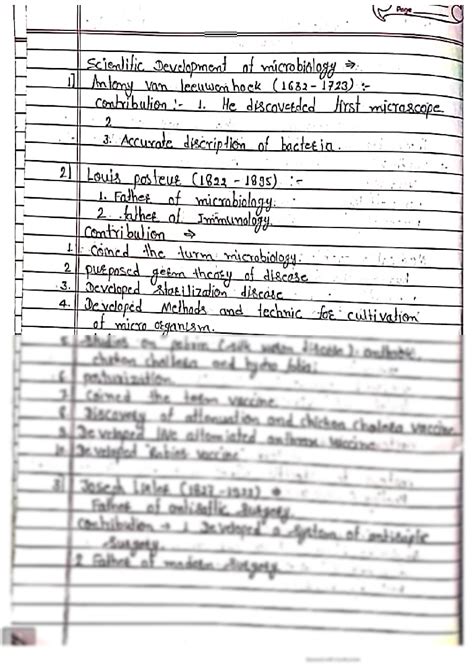 Page
Scientific Development of microbiology ⇒
1] Antony van leeuwenhoek (1632-1723) :-
contribution :- 1. He discoverded first microscope
2
3. Accurate discription of bacteria.
2] Louis posteur (1822-1895) :-
1. Father of microbiology.
2. father of Immunology.
Contribution ⇒
1. Coined the turm microbiology.
2 purposed geerm theory of disease
3. Developed Starilization disease
4. Developed Methods and technic for cultivation
of micro organism.
5. Studies on
cholera and
6.
7. Coined the term vaccine
8 Discovery of attenuation and chicken cholera vaccine
9. Developed live anthrax vaccine
10. Developed Rabies vaccine
3] Joseph (1827-
Father of Surgery.
Contribution → 1. Developed a system of
Surgery.
2 Father of modern Surgery